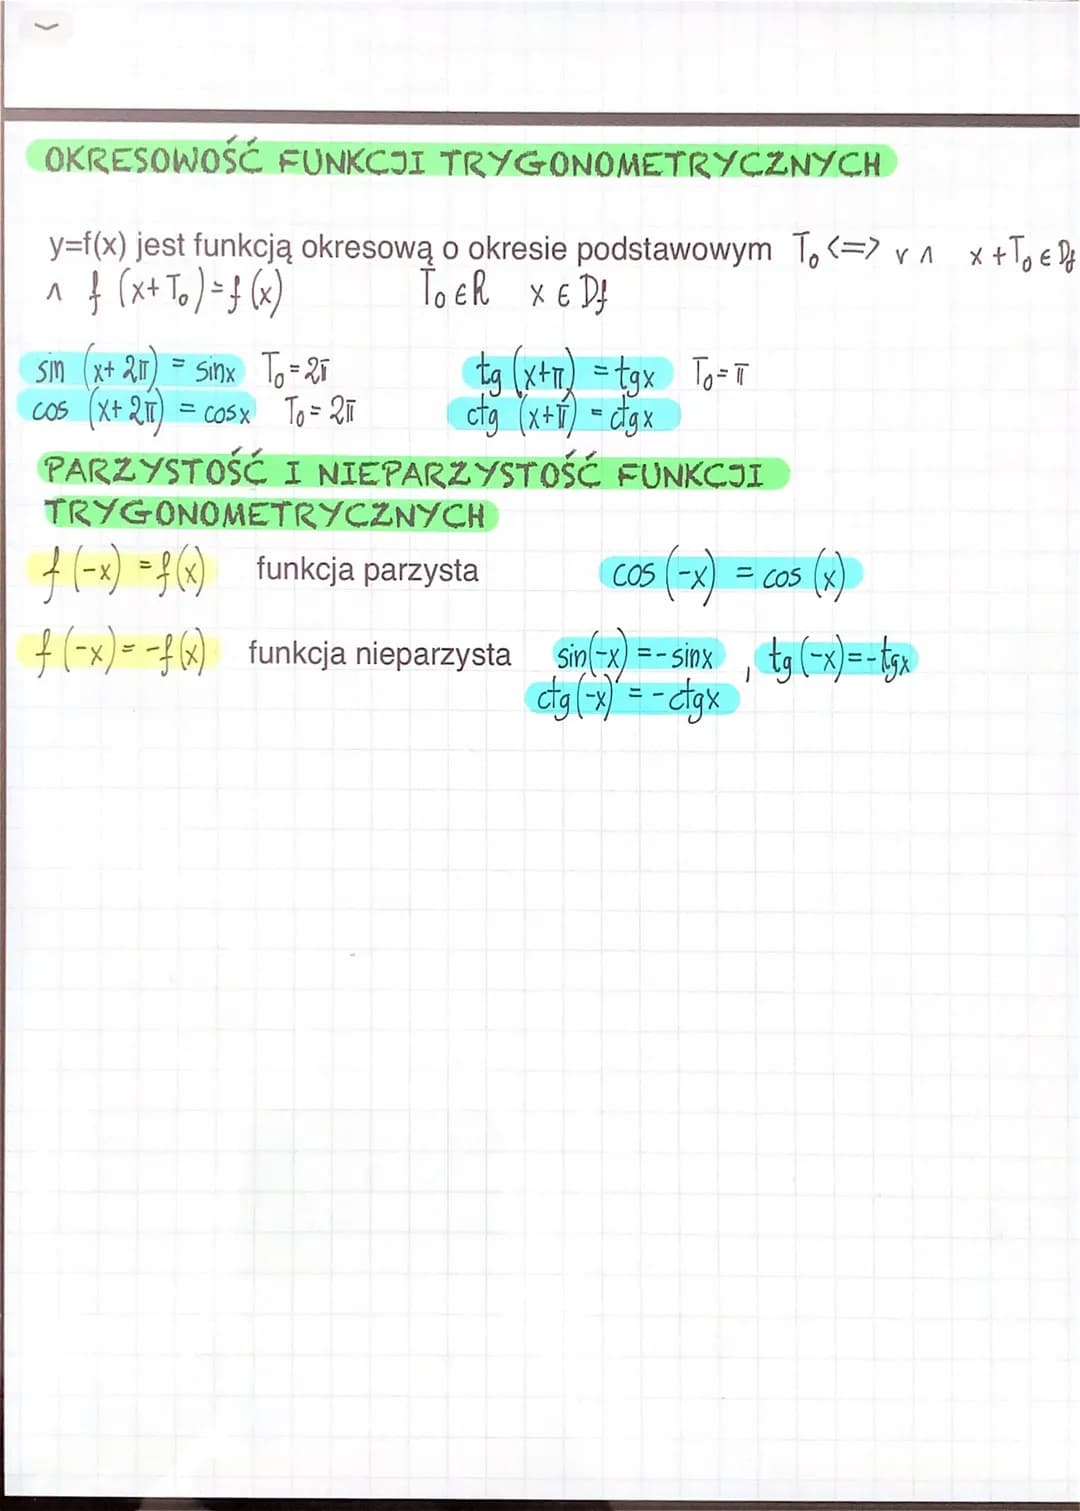 OKRESOWOŚĆ FUNKCJI TRYGONOMETRYCZNYCH
y=f(x) jest funkcją okresową o okresie podstawowym T₀ <=> v ∧ x+T₀ ∈ Df
∧ f (x+T₀)=f(x) T₀∈R x ∈ Df
sin (x+2π) = sinx T₀=2π tg (x+π) = tgx T₀=π
cos (x+2π) = cosx T₀=2π ctg (x+π) = ctgx
PARZYSTOŚĆ I NIEPARZYSTOŚĆ FUNKCJI
TRYGONOMETRYCZNYCH
f(-x) = f(x) funkcja parzysta cos (-x) = cos (x)
f(-x) = -f(x) funkcja nieparzysta sin(-x) = -sinx , tg(-x)=-tgx
ctg(-x) = -ctgx